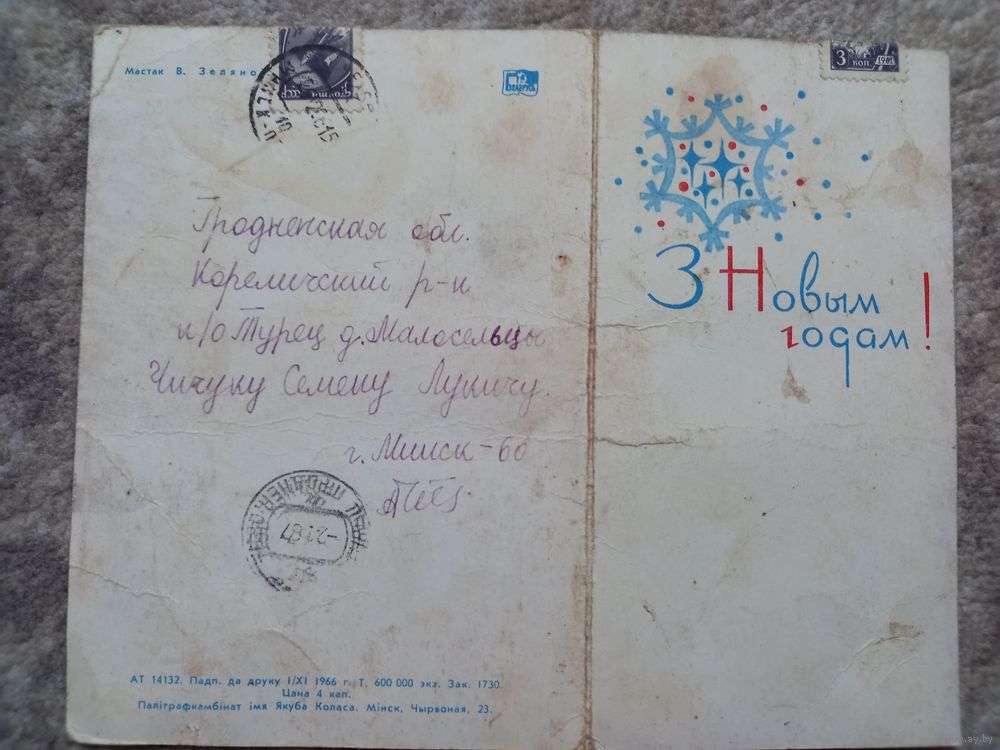 Мастак В. Зеляно
БЕЛАРУСЬ
Гродненская обл.
Кореличский р-н
п/о Турец д. Малосельцы
Чичуку Семену Лукичу.
г. Минск-60
АТ 14132. Падп. да друку І/XІ 1966 г. Т. 600 000 экз. Зак. 1730.
Цана 4 кап.
Паліграфкамбінат імя Якуба Коласа. Мінск, Чырвоная, 23.
3 коп 1961
З Новым
годам!